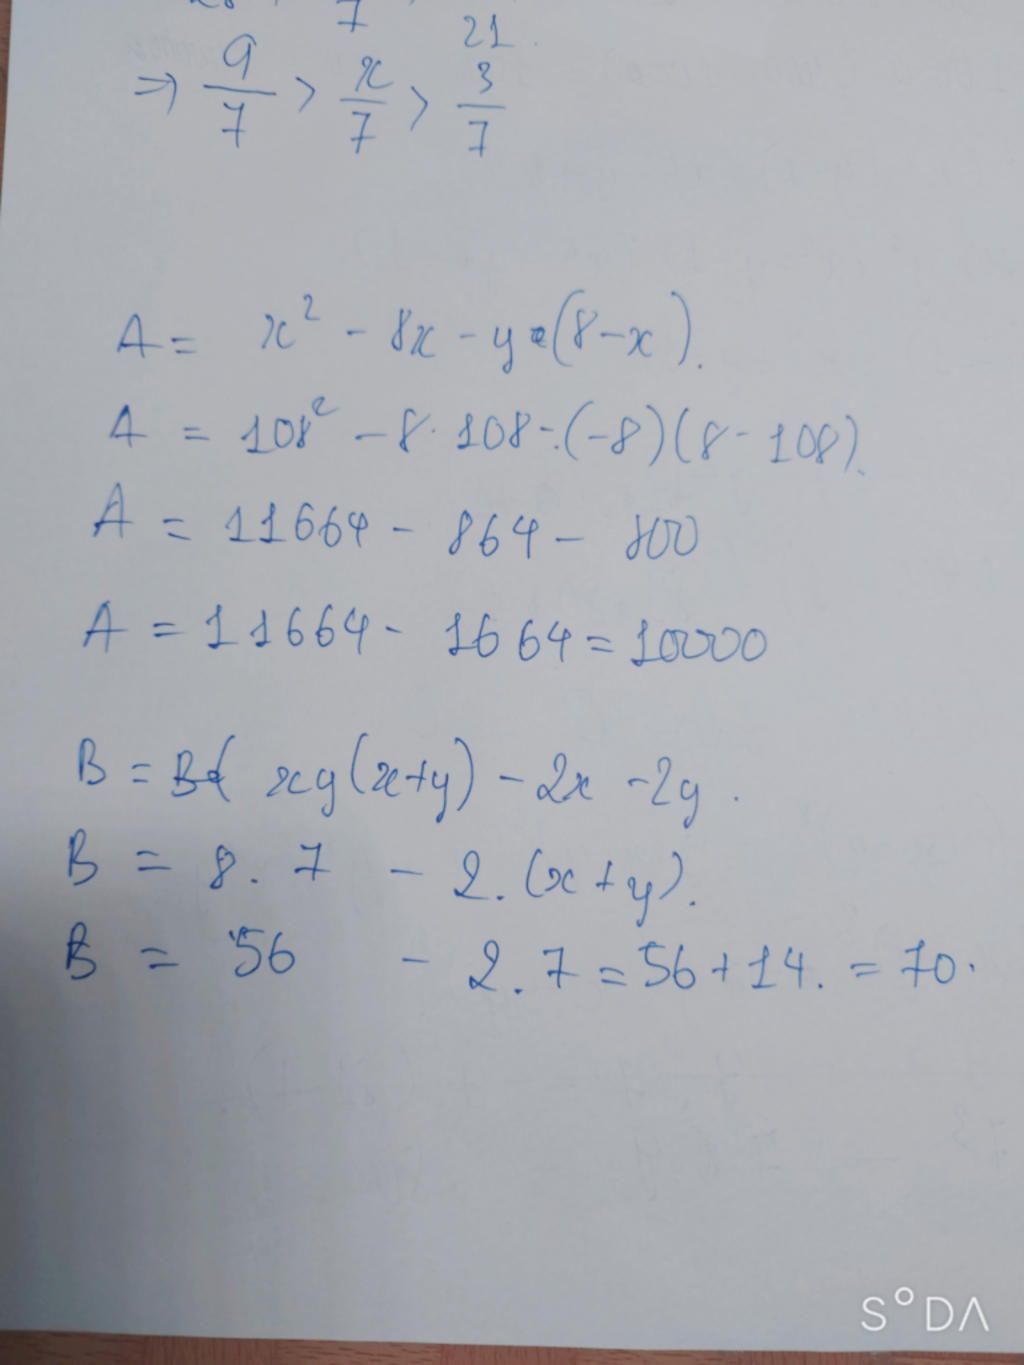 7 21.
⇒ 9/7 > x/7 > 3/7
A = x² - 8x - y(8-x).
A = 108² - 8·108-.(-8)(8-108).
A = 11664 - 864 - 800
A = 11664 - 1664 = 10000
B = xy(x+y) - 2x - 2y.
B = 8.7 - 2.(x+y).
B = 56 - 2.7 = 56+14. = 70.
S°DA